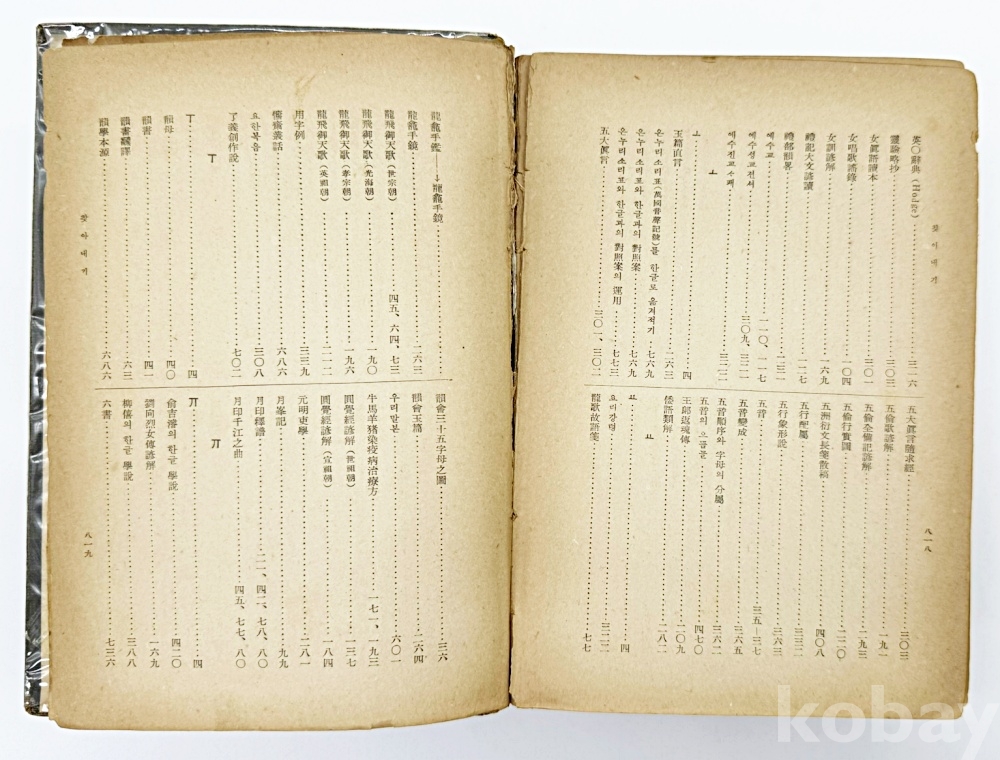 찾아내기
英〇辭典(Hodge)……三一六
靈驗略抄……
女眞語讀本……三〇一
女唱歌謠錄……一〇四
女訓諺解……一六九
禮記大文諺讀……一二七
禮部韻略……三一
예수교……一一七
예수성교전셔……三〇九、三二一
예수진교사패……三二二
ㅗ
ㅗ……四
玉篇直音……二六三
온누리소리표(萬國音聲記號)를 한글로 옮겨적기……七六九
온누리소리표와 한글과의 對照案……七六九
온누리소리표와 한글과의 對照案의 運用……七七三
五大眞言……三〇一、三〇二
五大眞言隨求經……三〇三
五倫歌諺解……一九一
五倫全備記諺解……一九三
五倫行實圖……二二〇
五洲衍文長箋散稿……四〇八
五行配屬……三三二
五行象形說……三六三
五音……三五—三七
五音變成……三六五
五音順序와 字母의 分屬……三六二
五音의 으뜸글……四七〇
王郞返魂傳……一〇九
倭語類解……一八二
ㅛ
ㅛ……四
요리강령……三二二
龍歌故語箋……七七
八一八
龍龕手鑑……→龍龕手鏡
龍龕手鏡……二六三
龍飛御天歌(世宗朝)……四五、六四、七三
龍飛御天歌(光海朝)……一九〇
龍飛御天歌(孝宗朝)……一九六
龍飛御天歌(英祖朝)……二一二
用字例……三三九
慵齋叢話……六八六
요한복음……三〇八
了義創作說……七〇二
ㅜ
ㅜ……四
韻母……四〇
韻書……四一
韻書飜譯……六三
韻學本源……六八六
韻會三十五字母之圖……三六
韻會玉篇……二六四
우리말본……六〇一
牛馬羊猪染疫病治療方……一七一、一九三
圓覺經諺解(世祖朝)……一三七
圓覺經諺解(宣祖朝)……一八四
元明吏學……二八一
月峯記……九九
月印釋譜……二一、四二、七八、八〇
月印千江之曲……四五、七七、八〇
ㅠ
ㅠ……四
兪吉濬의 한글 學說……四二〇
劉向烈女傳諺解……一六九
柳僖의 한글 學說……三八八
六書……七三六
찾아내기
八一九
kobay